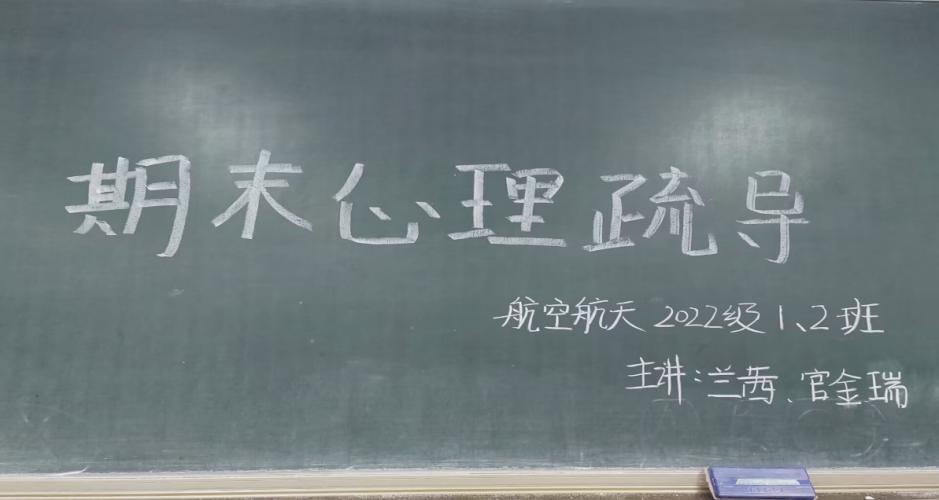 期末心理疏导
航空航天 2022级 1、2班
主讲:兰茜、官金瑞